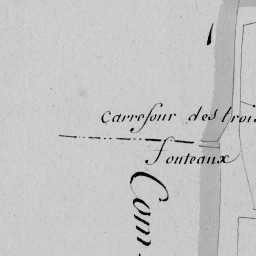 Carrefour des trois
fonteaux
Com